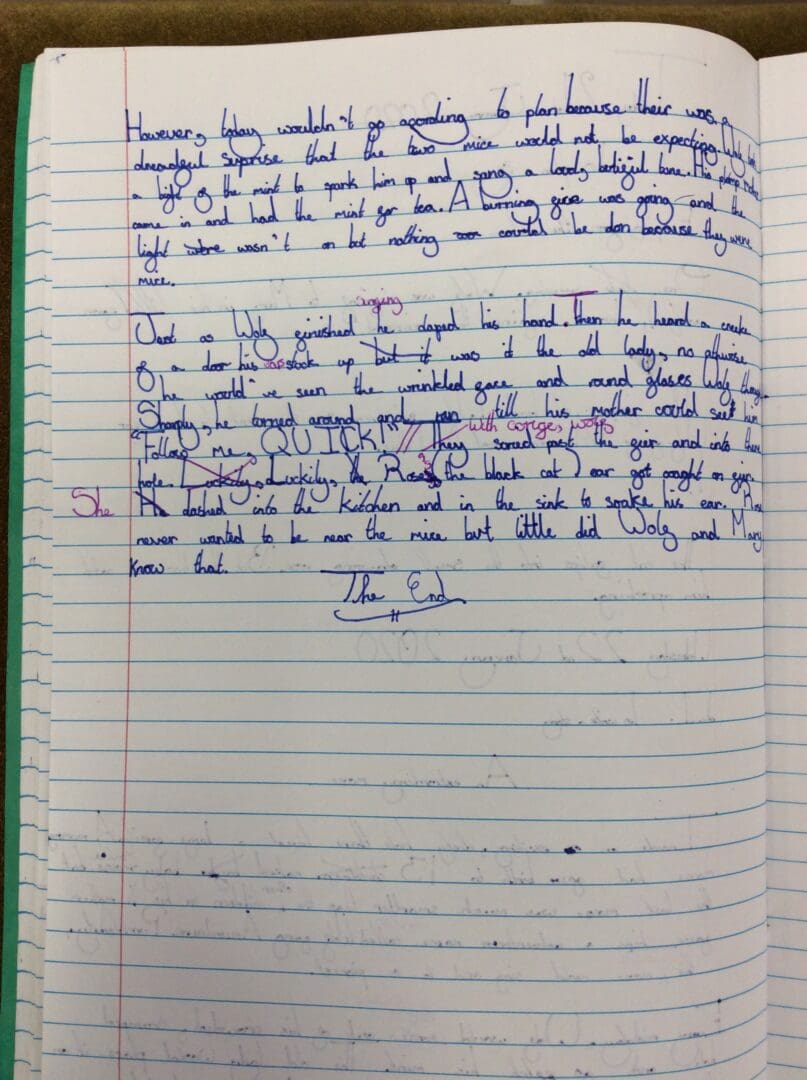 However, today wouldn't go acording to plan because their was a
dreadful suprise that the two mice would not be expecting. Wolf had
a bight of the mint to spark him up and sang a loud, betiful tune. His
came in and had the mint for tea. A burning fire was going and the
light wasn't on but nothing could be don because they were
mice.
singing
Just as Wolf finished he claped his hand. Then he heard a creeke
of a door his ears stook up but if was it the old lady, no otherwise
he would've seen the wrinkled face and round glases Wolf
Sharply, he turned around and ran till his mother could see him
with corige, wolfs
"Follow me, QUICK!" They sored past the fier and into there
hole. Luckily, Luckily, the Roses (the black cat) ear got caught on fier.
She He dashed into the kitchen and in the sink to soake his ear. Rose
never wanted to be near the mice but little did Wolf and Mary
know that.
The End